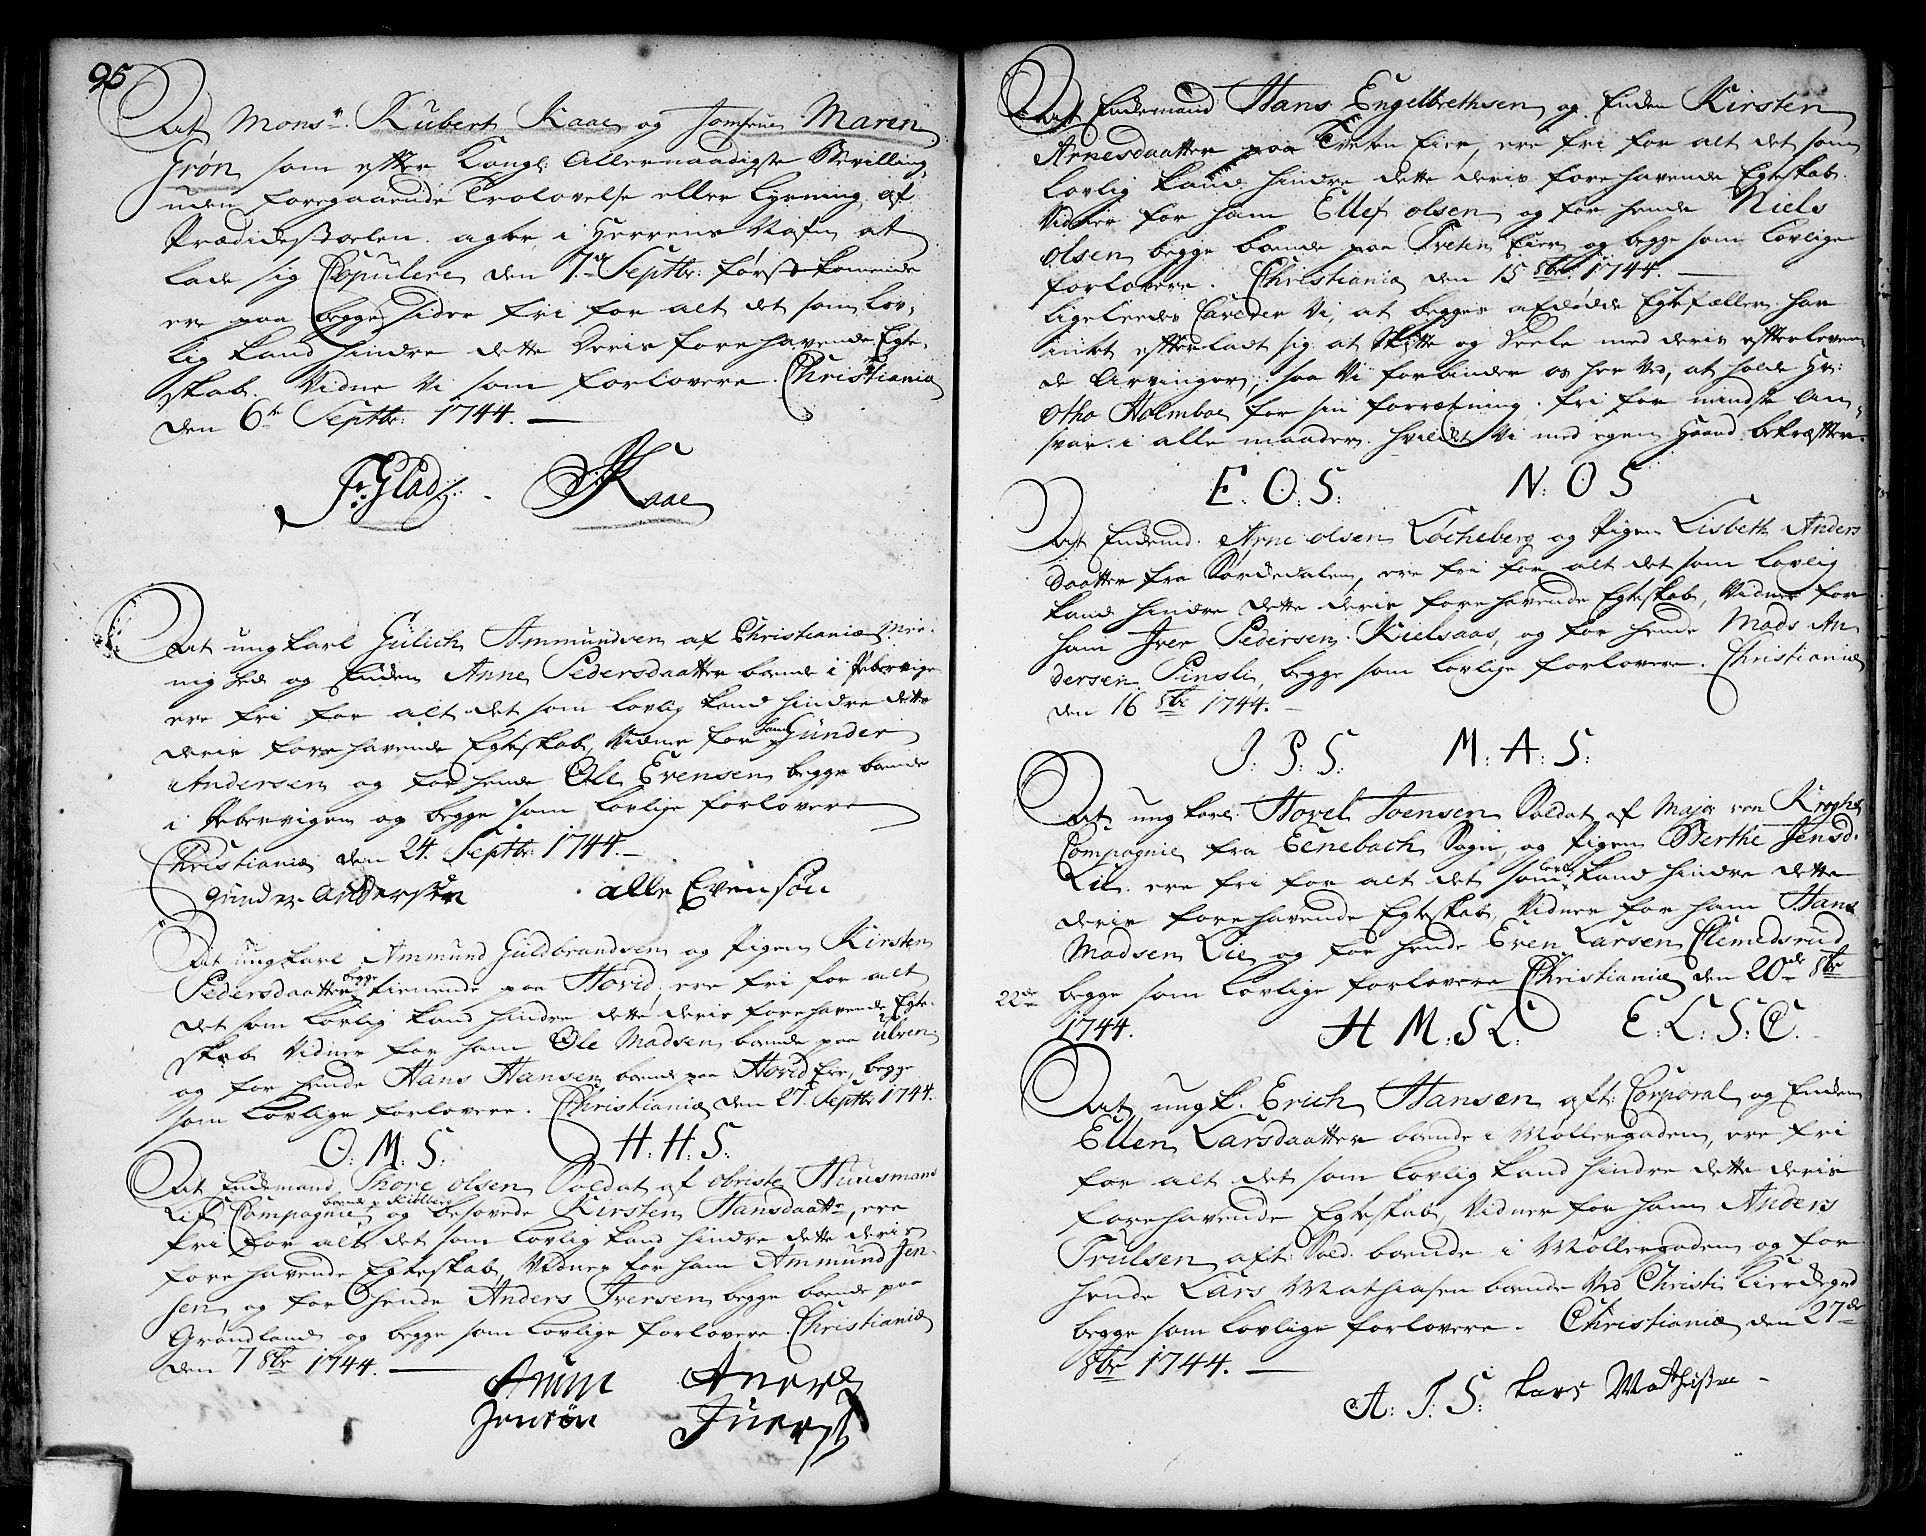 95
At Mons.r Rubert Kaae og Jomfrue Maren
Grøn som efter Kongl: Allernaadigste Bevilling,
uden foregaaende Trolovelse eller Lysning af
Prædickestoelen. agter i Herrens Nafn at
lade sig Copulere den 7de Septbr: først komende
ere paa begge sider fri for alt det som lov-
lig kand hindre dette deris forehavende Egte-
skab. Vidne Vi som forlovere. Christiania
den 6te Septbr: 1744.
Fr: Glad. Kaae
At ungkarl Gülich Ammundsen af Christianiæ Me-
nighed og Enken Anne Pedersdaatter boende i Pebervigen
ere fri for alt det som lovlig kand hindre dette
deris forehavende Egteskab, Vidner for ham Günder
Andersen og for hende Ole Evensen begge boende
i Pebervigen og begge som lovlige forlovere
Christiania den 24. Septbr: 1744.
gunder Andersen alle Evensøn
At ungkarl Ammund Guldbrandsen og Pigen Kirsten
Pedersdaatter begge tienende paa Hovid, ere fri for alt
det som lovlig kand hindre dette deris forehavende Egte-
skab Vidner for ham Ole Madsen boende paa Ulven
og for hende Hans Hansen boende paa Hovid Eie, begge
som lovlige forlovere. Christiania den 27. Septbr 1744.
O. M. S. H: H: S.
At Enkemand Thore Olsen Soldat af Obriste Huusmans
Lif Compagnie boende Kiølberg og besovede Kirsten Hansdaattr, ere
fri for alt det som lovlig kand hindre dette deris
forehavende Egteskab, Vidner for ham Ammund Jen-
sen og for hende Anders Iversen begge boende paa
Grønland og begge som lovlige forlovere. Christiania
den 7 8br 1744.
Amm Anders
Jensøn Iuers
At Enkemand Hans Engelbrethsen og Enken Kirsten
Arnesdaatter paa Treten Eier, ere fri for alt det som
lovlig kand hindre dette deris forehavende Egteskab.
Vidner for ham Ellef Olsen og for hende Niels
Olsen begge boende paa Treten Eier og begge som lovlige
forlovere. Christiania den 15 8br. 1744.
Ligeledes Caverer Vi, at begges afdøde Egtefæller har
intet efterladt sig at Skifte og Deele med deris efterleven-
de Arvinger, saa Vi forbinder os her ved, at holde Hr:
Otho Holmboe for sin forretning fri for næmste An-
svar i alle maader. hvilket Vi med egen Haand bekræfter.
E. O. S. N: O S
At Enkemd. Arne Olsen Løcheberg og Pigen Lisbeth Anders
daatter fra Sørdedalen, ere fri for alt det som lovlig
kand hindre dette deris forehavende Egteskab, Vidner for
ham Iver Pedersen Kielsaas, og for hende Mads An
dersen Pinsli, begge som lovlige forlovere. Christiania
den 16 8br 1744.
J. P. S. M. A. S.
At ungkarl Hovel Joensen Soldat af Major von Kroghs
Compagnie fra Eenebach Sogn, og Pigen Berthe Jensd.
Lie. ere fri for alt det som lovlig kand hindre dette
deris forehavende Egteskab, Vidner for ham Hans
Madsen Lie og for hende Even Larsen Clemedsrud
begge som lovlige forlovere Christiania den 20de 8br
22de
1744. H M: S L: E. L. S. C.
At ungk. Erich Hansen aft: Corporal og Enken
Ellen Larsdaatter boende i Møllergaden, ere fri
for alt det som lovlig kand hindre dette deris
forehavende Egteskab, Vidner for ham Anders
Trulsen aft: Sold. boende i Møllergaden og for
hende Lars Mathiasen boende ved Christi Kierkegrd
begge som lovlige forlovere. Christiania den 27de
8br 1744.
A: T. S: Lars Mathisen